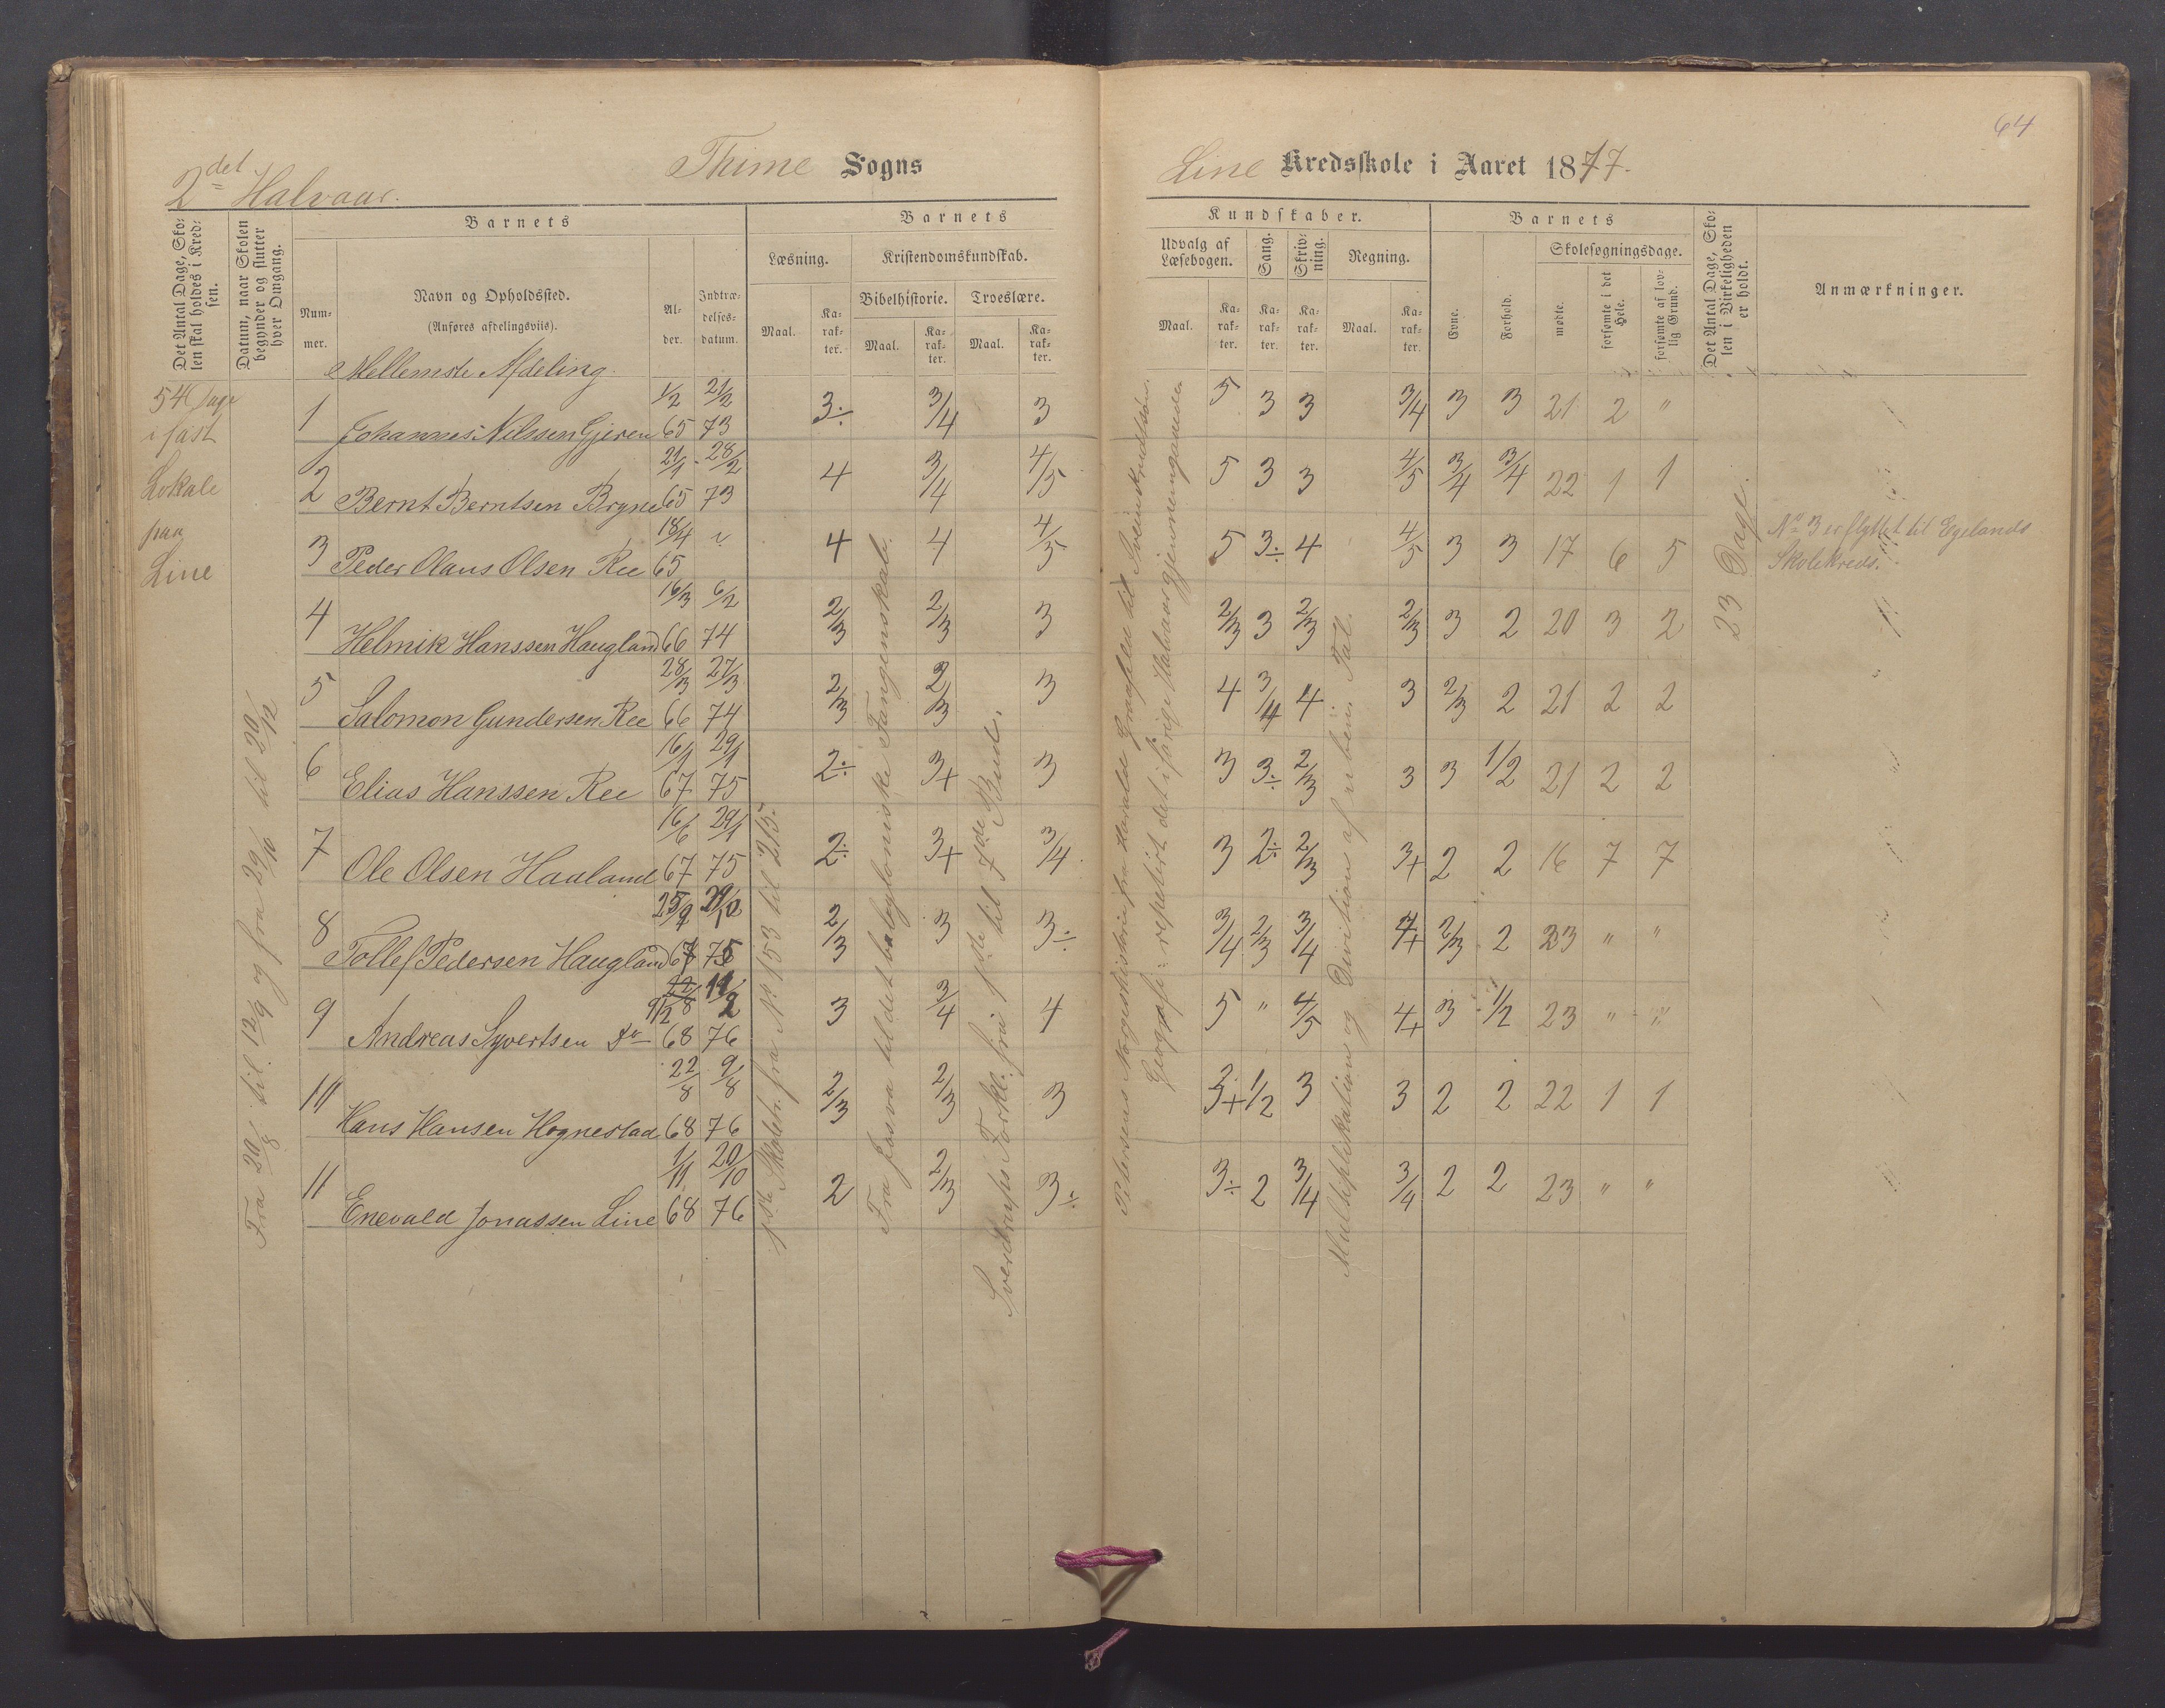 64
2det Halvaar.
Thime Sogns
Line Kredsskole i Aaret 1877.
Det Antal Dage, Skolen skal holdes i Kredsen.
Datum, naar Skolen begynder og slutter hver Omgang.
Barnets
Nummer.
Navn og Opholdssted.
(Anføres afdelingsviis).
Alder.
Indtrædelsesdatum.
Barnets
Læsning.
Maal.
Karakter.
Kristendomskundskab.
Bibelhistorie.
Maal.
Karakter.
Troeslære.
Maal.
Karakter.
Kundskaber.
Udvalg af Læsebogen.
Maal.
Karakter.
Sang.
Karakter.
Skrivning.
Karakter.
Regning.
Maal.
Karakter.
Barnets
Evne.
Forhold.
Skolesøgningsdage.
mødte.
forsømte i det Hele.
forsømte af lovlig Grund.
Det Antal Dage, Skolen i Virkeligheden er holdt.
Anmærkninger.
Mellemste Afdeling.
54 Dage
i fast
Lokale
paa
Line
Fra 20/8 til 12/9 og fra 29/10 til 20/12
1 Johannes Nilssen Gjeren 1/2 65 21/2 73 3÷ 3/4 3 5 3 3 3/4 3 3 21 2 "
2 Bernt Berntsen Bryne 21/1 65 28/2 73 4 3/4 4/5 5 3 3 4/5 3/4 3/4 22 1 1
3 Peder Olaus Olsen Ree 18/4 65 4 4 4/5 5 3÷ 4 4/5 3 3 17 6 5
4 Helmik Hanssen Haugland 16/3 66 6/2 74 2/3 2/3 3 2/3 3 2/3 2/3 3 2 20 3 2
5 Salomon Gundersen Ree 28/3 66 27/3 74 2/3 2/3 3 4 3/4 4 3 2/3 2 21 2 2
6 Elias Hanssen Ree 16/1 67 29/1 75 2÷ 3+ 3 3 3÷ 2/3 3 3 1/2 21 2 2
7 Ole Olsen Haaland 16/6 67 29/1 75 2÷ 3+ 3/4 3 2÷ 2/3 3+ 2 2 16 7 7
8 Tollef Pedersen Haugland 25/9 67 29/10 75 2/3 3 3÷ 3/4 2/3 3/4 4+ 2/3 2 23 " "
9 Andreas Syvertsen Do 9/12 68 11/2 76 3 3/4 4 5 " 4/5 4+ 3 1/2 23 " "
10 Hans Hansen Hognestad 22/8 68 9/8 76 2/3 2/3 3 3+ 1/2 3 3 2 2 22 1 1
11 Enevald Jonassen Line 1/11 68 20/10 76 2 2/3 3÷ 3÷ 2 3/4 3/4 2 2 23 " "
1ste Skoletr. fra No 153 til 215.
Fra Josva til det babyloniske Fangenskab.
Sverdrups Forkl. fra 1ste til 7de Bud.
Petersens Norgeshistorie fra Harald Graafeld til
Geografi: repetert det i forige Halvaar gjennemgaaede
Multiplikation og Division af ubenv. Tal.
23 Dage.
No 3 er flyttet til Egelands
Skolekreds.